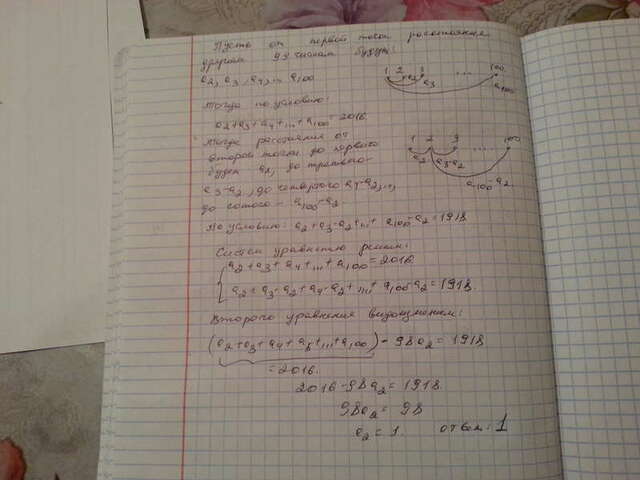 Пусть от первой точки расстояния
другим 99 числам будут:
a2, a3, a4,... a100
1 2 3 .... 100
a2 a3 a100
Тогда по условию:
a2+a3+a4+...+a100=2016
Тогда расстояния от
второй точки до первого
будет a2, до третьего-
a3-a2, до четвертого a4-a2,...,
до сотого - a100-a2.
1 2 3 ..... 100
a2 a3-a2 a100-a2
По условию: a2+a3-a2+...+ a100-a2=1918
Систем уравнению решим:
{ a2+a3+a4+...+a100=2016
a2+a3-a2+a4-a2+...+a100-a2=1918.
Второго уравнения видоизменим:
(a2+a3+a4+a5+...+a100)-98a2=1918
=2016.
2016-98a2=1918
98a2=98
a2=1. ответ: 1